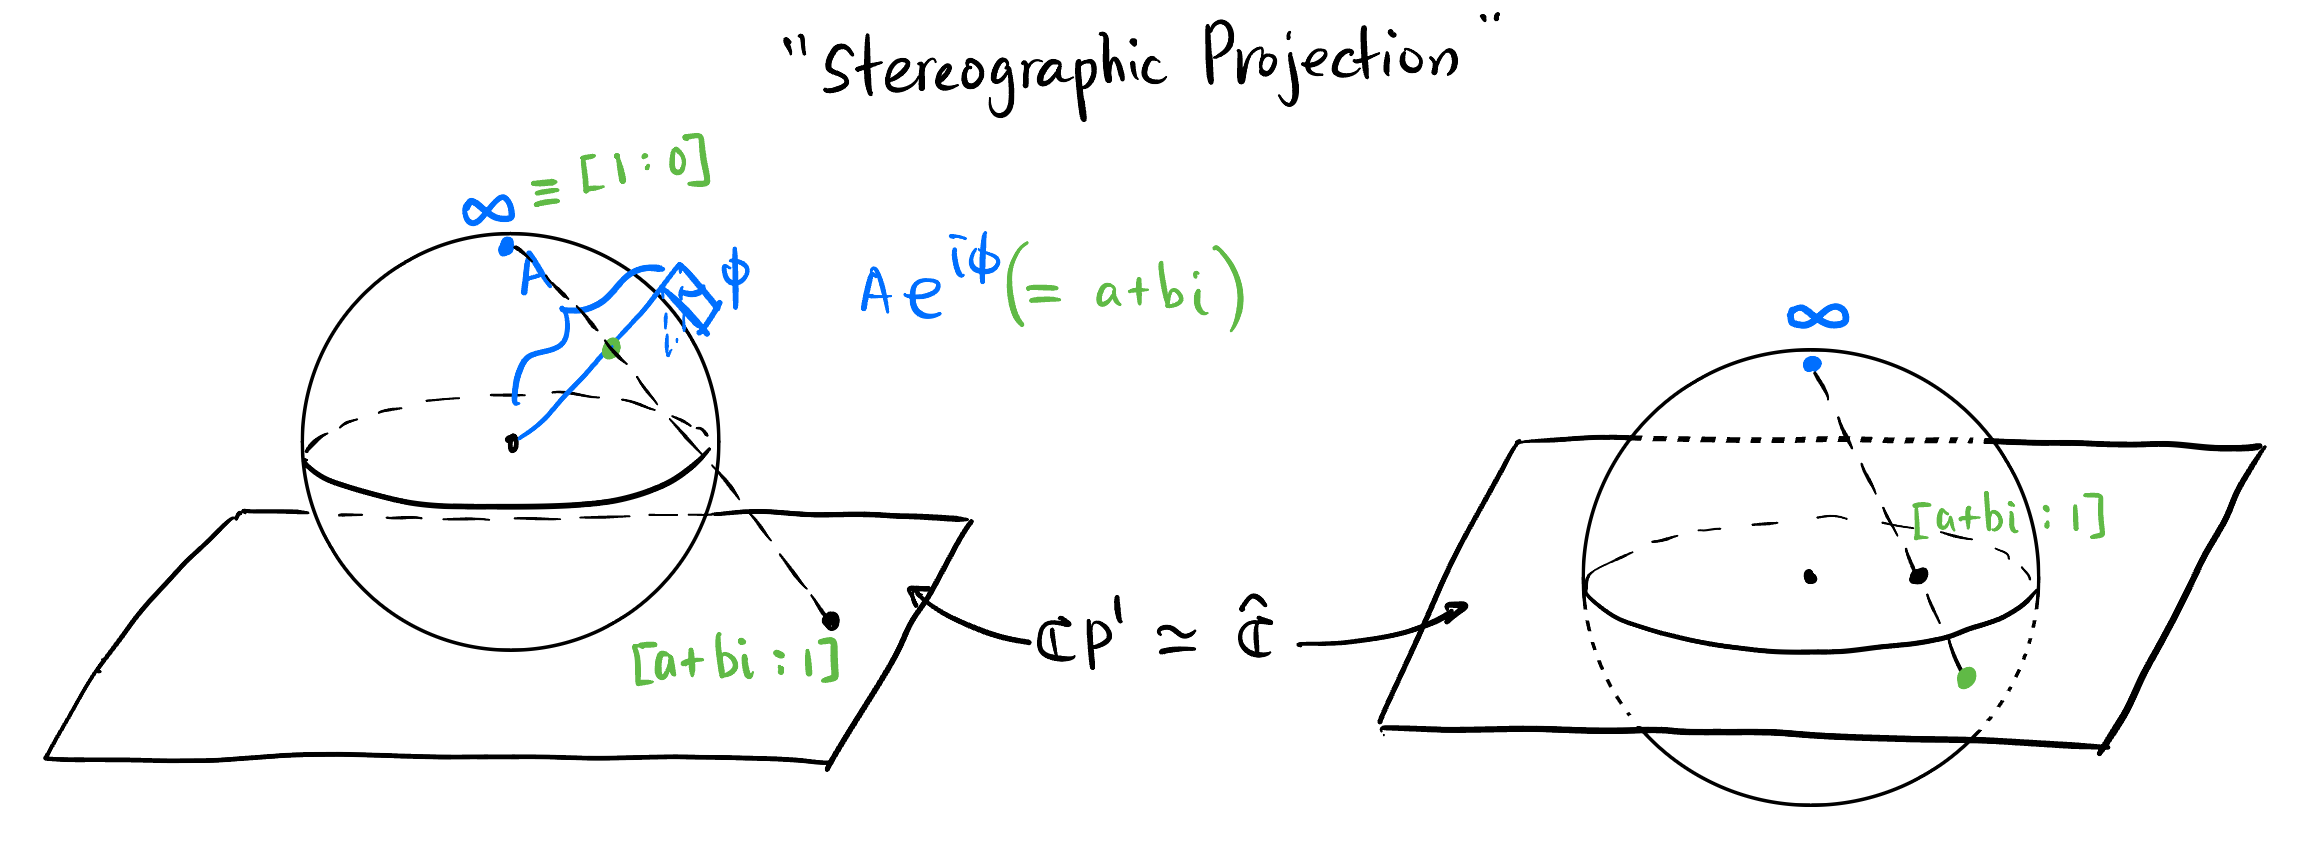 "Stereographic Projection"
∞ ≡ [1 : 0]
A
ϕ
A e^{iϕ} (= a+bi)
∞
[a+bi : 1]
[a+bi : 1]
ℂP¹ ≃ ℂ̂